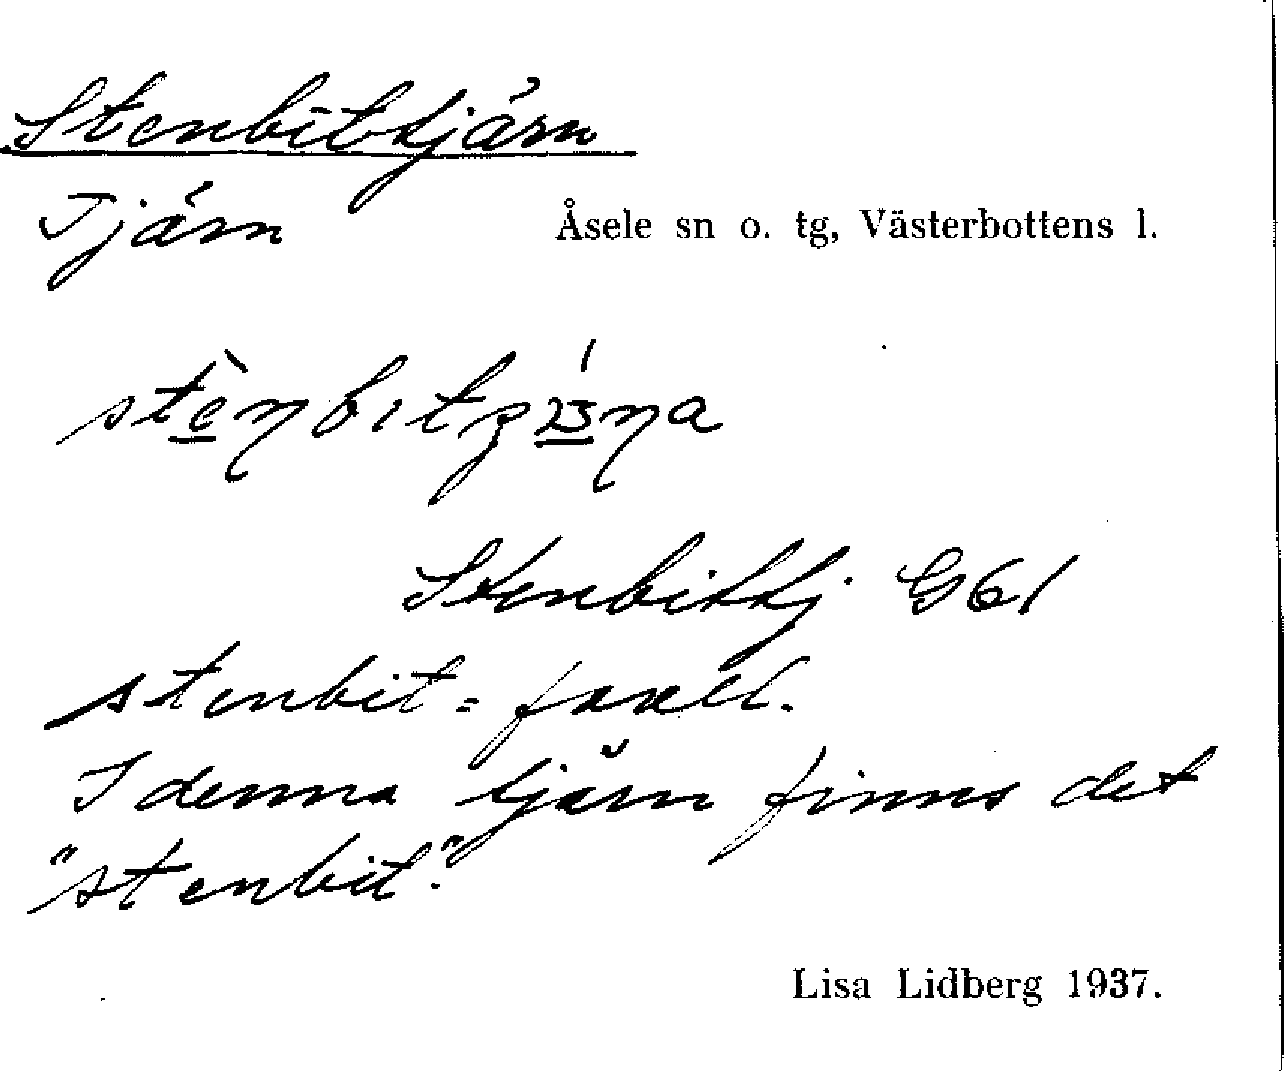 Stenbittjärn
Tjärn
Åsele sn o. tg, Västerbottens l.
Stenbittj. G61
stenbit =
I denna tjärn finns det
"stenbit".
Lisa Lidberg 1937.